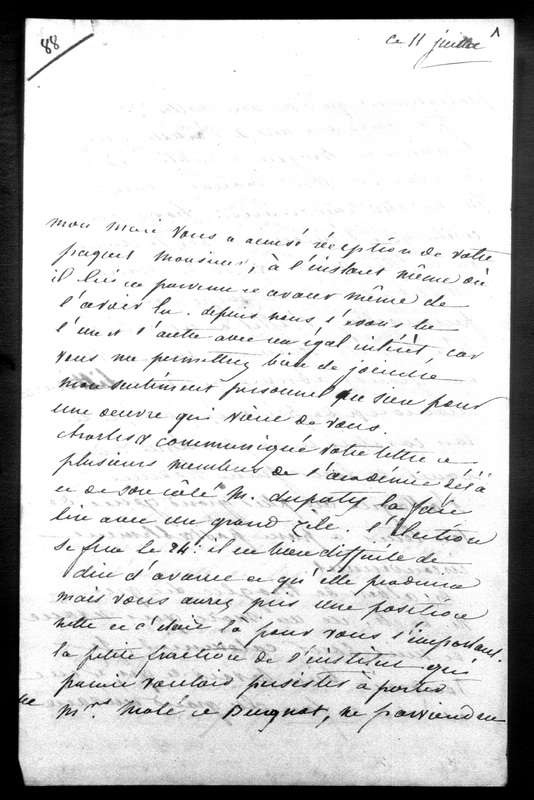 88
ce 11 juillet
mon mari vous a accusé réception de votre
paquet monsieur, à l'instant même où
il lui est parvenu et avant même de
l'avoir lu. depuis nous l'avons lu
l'un et l'autre avec un égal intérêt, car
vous me permettrez bien de joindre
mon sentiment personnel au sien pour
une oeuvre qui vient de vous.
Charles a communiqué votre lettre a
plusieurs membres de l'académie
et de son côté M. dupaty la fait
lire avec un grand zèle. l'élection
se fera le 24. il est bien difficile de
dire d'avance ce qu'elle produira
mais vous aurez pris une position
nette et c'était là pour vous l'important.
la petite fraction de l'institut qui
parait vouloir persister à porter
Mrs Molé et Bugnot, ne parviendra